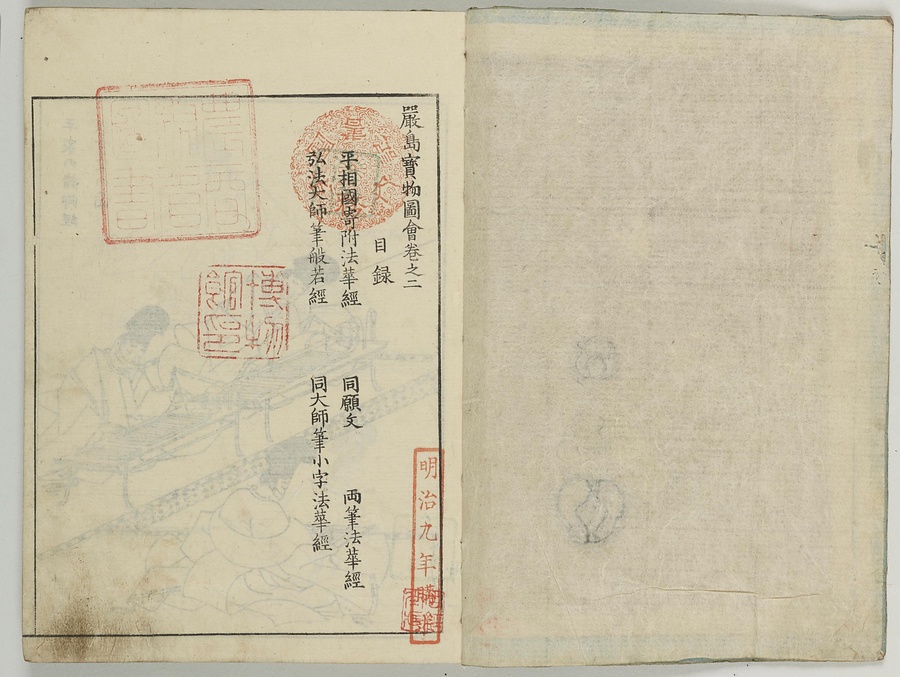 嚴島寶物圖會卷之二
目録
平相國寄附法華經 同願文 両筆法華經
弘法大師筆般若經 同大師筆小字法華經
明治九年購求
博物館印